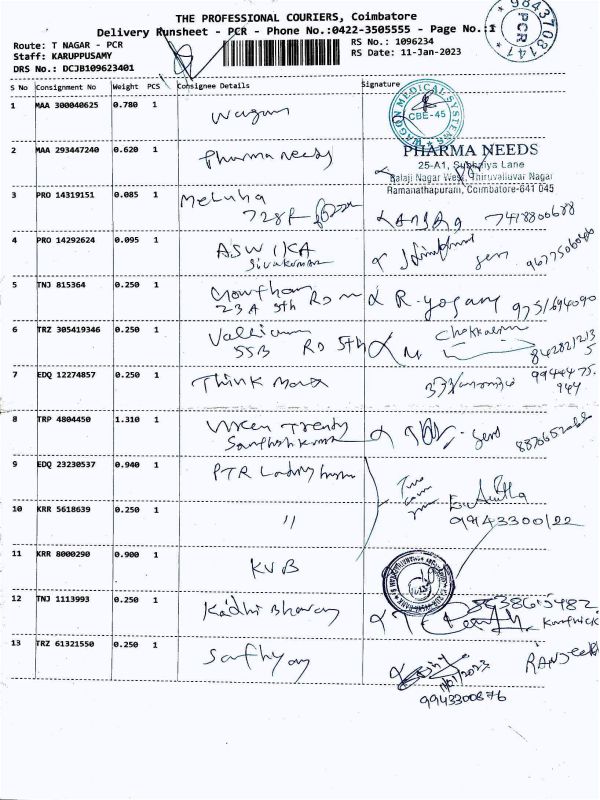 THE PROFESSIONAL COURIERS, Coimbatore
Delivery Runsheet - PCR - Phone No.:0422-3505555 - Page No.:1
Route: T NAGAR - PCR
RS No.: 1096234
Staff: KARUPPUSAMY
RS Date: 11-Jan-2023
DRS No.: DCJB109623401
* 9843708147 * PCR
S No Consignment No Weight PCS Consignee Details Signature
1 MAA 300040625 0.780 1 Wagon
WAGON MEDICAL SYSTEMS
CBE-45
2 MAA 293447240 0.620 1 Pharma needs
PHARMA NEEDS
25-A1, Subbaiya Lane
Balaji Nagar West, Thiruvalluvar Nagar
Ramanathapuram, Coimbatore-641 045
3 PRO 14319151 0.085 1 Meluha
728F
7418800688
4 PRO 14292624 0.095 1 ASWIKA
Sivakumar
5 TNJ 815364 0.250 1 Gowtham
23 A 5th Rd
R. yogam 9751694090
6 TRZ 305419346 0.250 1
55B Rd 5th
7 EDQ 12274857 0.250 1 Think
9944475
944
8 TRP 4804450 1.310 1 Trendy
Santhosh Kumar
9 EDQ 23230537 0.940 1 PTR
10 KRR 5618639 0.250 1 "
9943300122
11 KRR 8000290 0.900 1 KVB
12 TNJ 1113993 0.250 1 Kadhi Bhavan
8638615482
Karthick
13 TRZ 61321550 0.250 1 Sathya
11/01/2023
9943300876